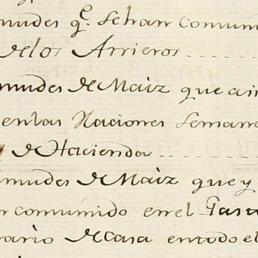 mudes q.^e se han consumi
de los Arrieros
mudes de Maiz que ai
en las Naciones
de Hacienda
mudes de Maiz que y
consumido en el Gast
rario de casa en todo el